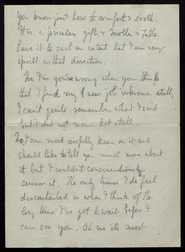 you know just how to comfort & soothe.
It is a priceless gift, & Mother & Tibbie
have it to such an extent that I am very
spoilt in that direction.
No I'm you're wrong when you think
that I find my new job irksome atall.
I can't quite remember what I said
but I did not mean that atall.
No, I am most awfully keen on it and
should like to tell you much more about
it but I couldn't conscientiously
censor it. The only times I do feel
discontented is when I think of the
long time I've got to wait before I
can see you. It is the most